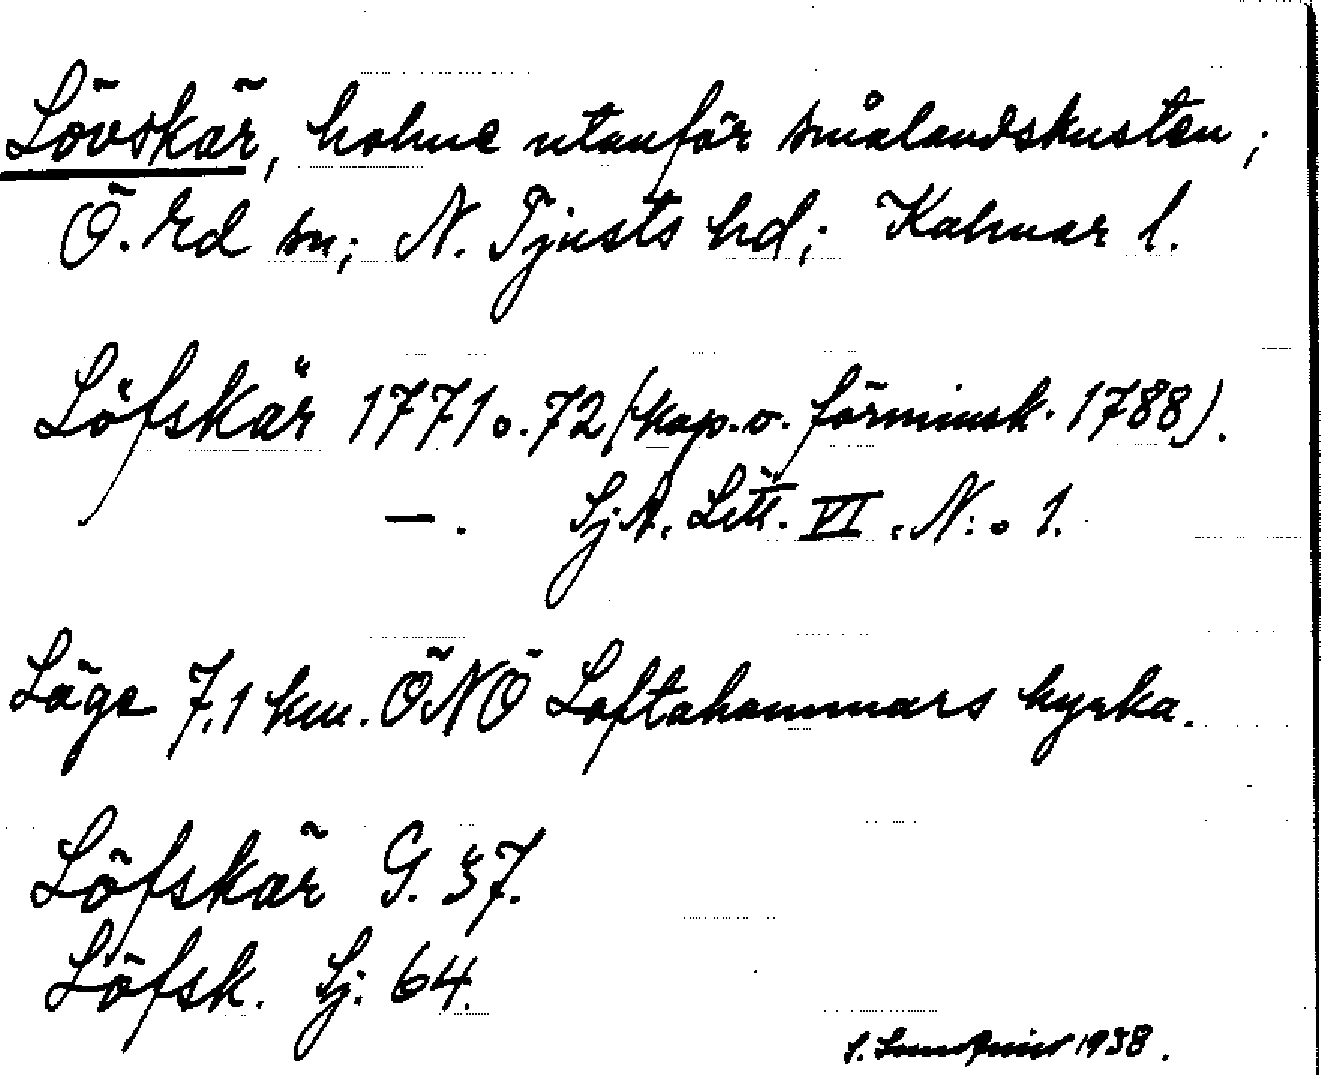 Lövskär, holme utanför smålandskusten;
Ö. Ed sn; N. Tjusts hd; Kalmar l.
Löfskär 1771 o. 72 (kop. o. förminsk. 1788).
— . Sj.A. Litt. VI. N:o 1.
Läge 7,1 km. ÖNÖ Loftahammars kyrka.
Löfskär G. 37.
Löfsk. Sj. 64.
1938.